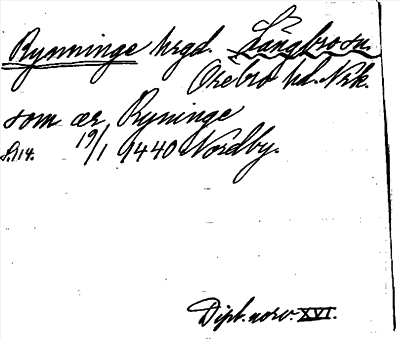 Rynninge hrgd. Långbro sn.
Örebro hd. Nrk.
som ær Ryninge
S. 114. 19/1 1440 Nordby.
Dipl. norv. XVI.